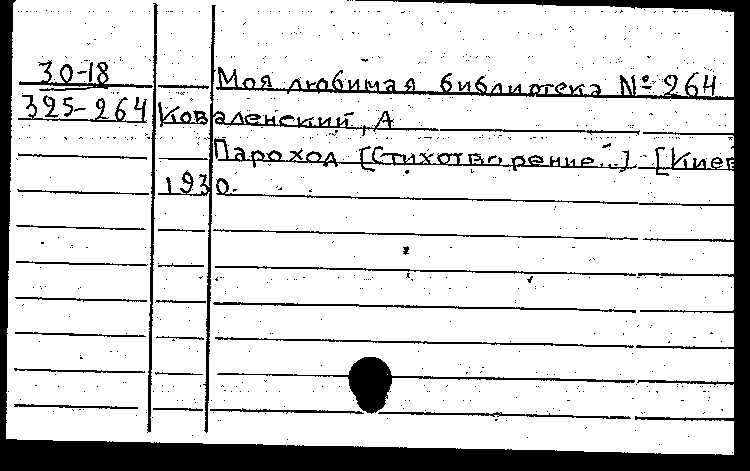 30-18
Моя любимая библиотека № 264
325-264 Коваленский, А
Пароход [Стихотворение...]. [Киев
1930.